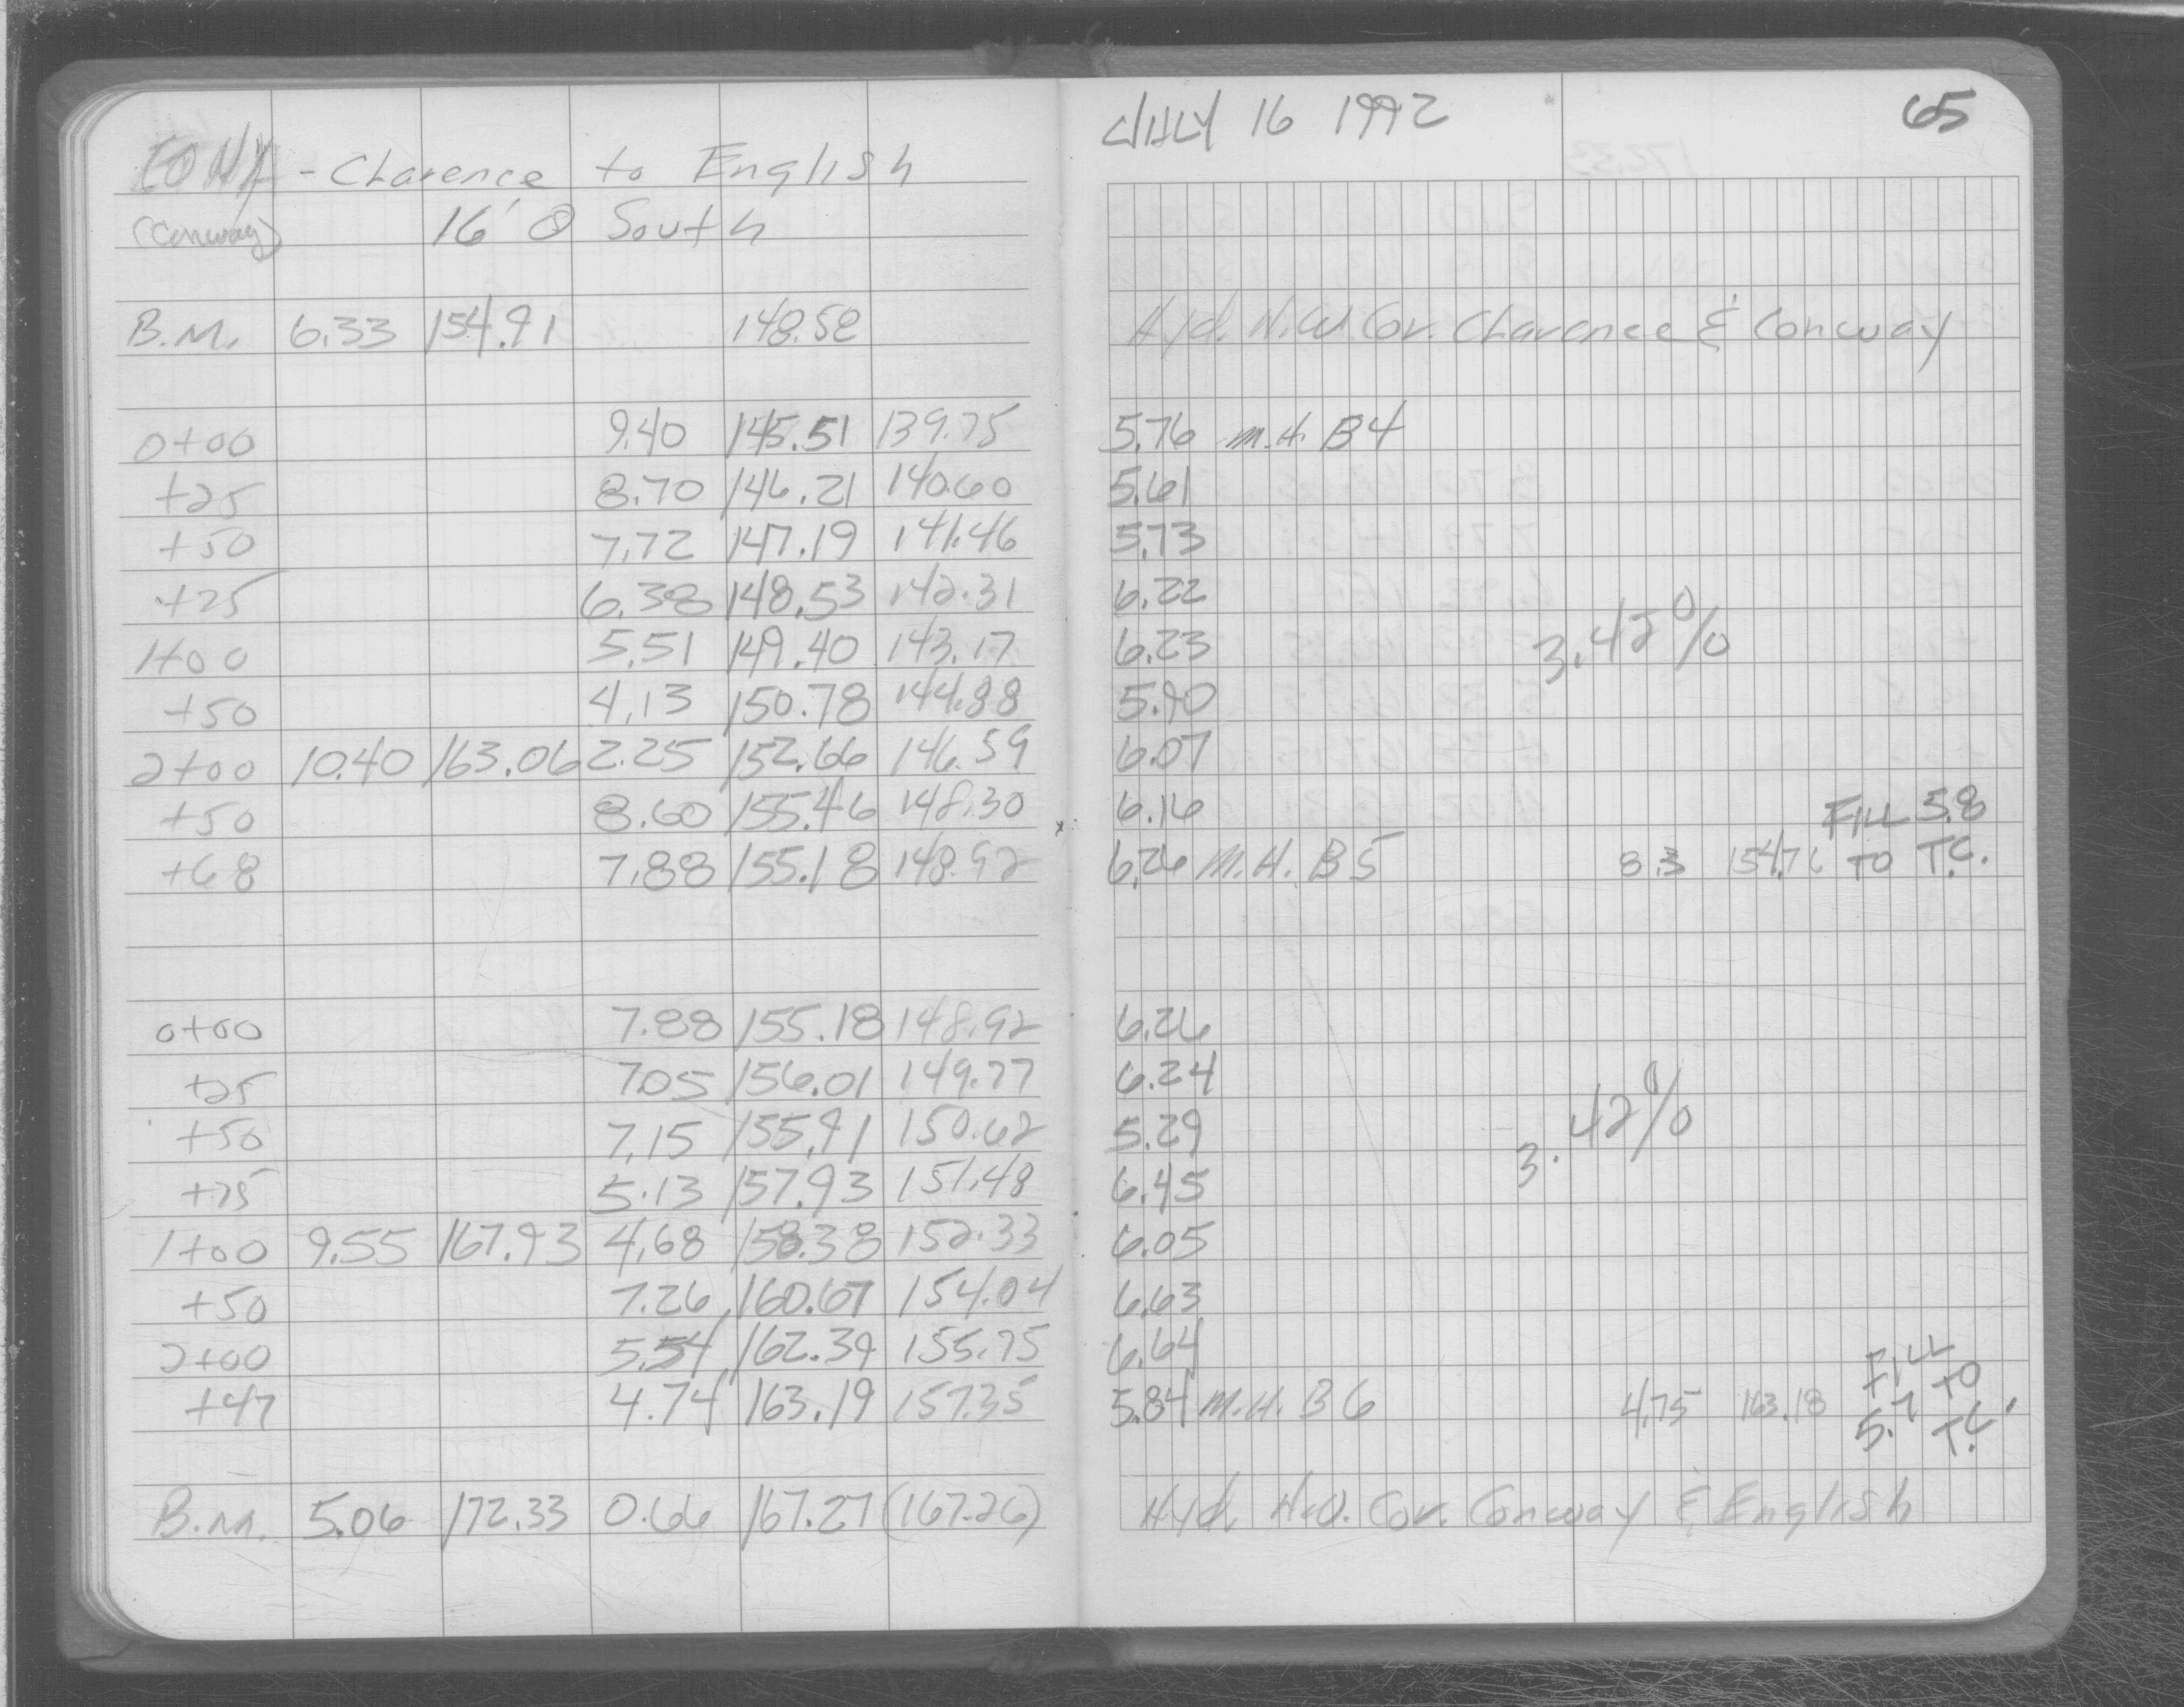 CONX - Clarence to English
(Conway) 16' @ South
B.M. 6.33 154.91 148.58
0+00 9.40 145.51 139.75
+25 8.70 146.21 140.60
+50 7.72 147.19 141.46
+75 6.38 148.53 142.31
1+00 5.51 149.40 143.17
+50 4.13 150.78 144.88
2+00 10.40 163.06 2.25 152.66 146.59
+50 8.60 155.46 148.30
+68 7.88 155.18 148.92
0+00 7.88 155.18 148.92
+25 7.05 156.01 149.77
+50 7.15 155.91 150.62
+75 5.13 157.93 151.48
1+00 9.55 167.93 4.68 158.38 152.33
+50 7.26 160.67 154.04
2+00 5.54 162.39 155.75
+47 4.74 163.19 157.35
B.M. 5.06 172.33 0.66 167.27 (167.26)
JULY 16 1992 65
Hyd. N.W Cor. Clarence & Conway
5.76 M.H. B4
5.61
5.73
6.22
6.23 3.42%
5.90
6.07
6.16 FILL 5.8
6.26 M.H. B5 8.3 154.76 TO T.C.
6.26
6.24
5.29 3.42%
6.45
6.05
6.63
6.64 FILL
5.84 M.H. B6 4.75 163.18 5.7 TO T.C.
Hyd. N.W. Cor. Conway & English